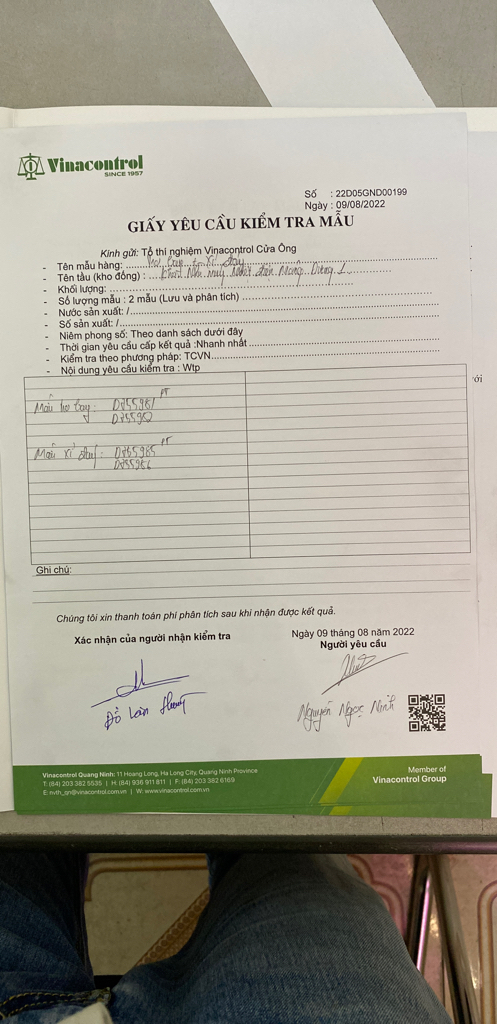 Vinacontrol
SINCE 1957
Số : 22D05GND00199
Ngày : 09/08/2022
GIẤY YÊU CẦU KIỂM TRA MẪU
Kính gửi: Tổ thí nghiệm Vinacontrol Cửa Ông
- Tên mẫu hàng: Tro bay + Xỉ đáy
- Tên tàu (kho đống) : Kho Nhà máy Nhiệt điện Mông Dương 1
- Khối lượng:
- Số lượng mẫu : 2 mẫu (Lưu và phân tích)
- Nước sản xuất: /
- Số sản xuất: /
- Niêm phong số: Theo danh sách dưới đây
- Thời gian yêu cầu cấp kết quả :Nhanh nhất
- Kiểm tra theo phương pháp: TCVN
- Nội dung yêu cầu kiểm tra : Wtp
Mẫu tro bay: PT
Mẫu xỉ đáy: PT
Ghi chú:
Chúng tôi xin thanh toán phí phân tích sau khi nhận được kết quả.
Xác nhận của người nhận kiểm tra
Ngày 09 tháng 08 năm 2022
Người yêu cầu
Nguyễn Ngọc Ninh
Vinacontrol Quang Ninh: 11 Hoang Long, Ha Long City, Quang Ninh Province
T: (84) 203 382 5535 | H: (84) 936 911 811 | F: (84) 203 382 6169
E: nvth_qn@vinacontrol.com.vn | W: www.vinacontrol.com.vn
Member of
Vinacontrol Group